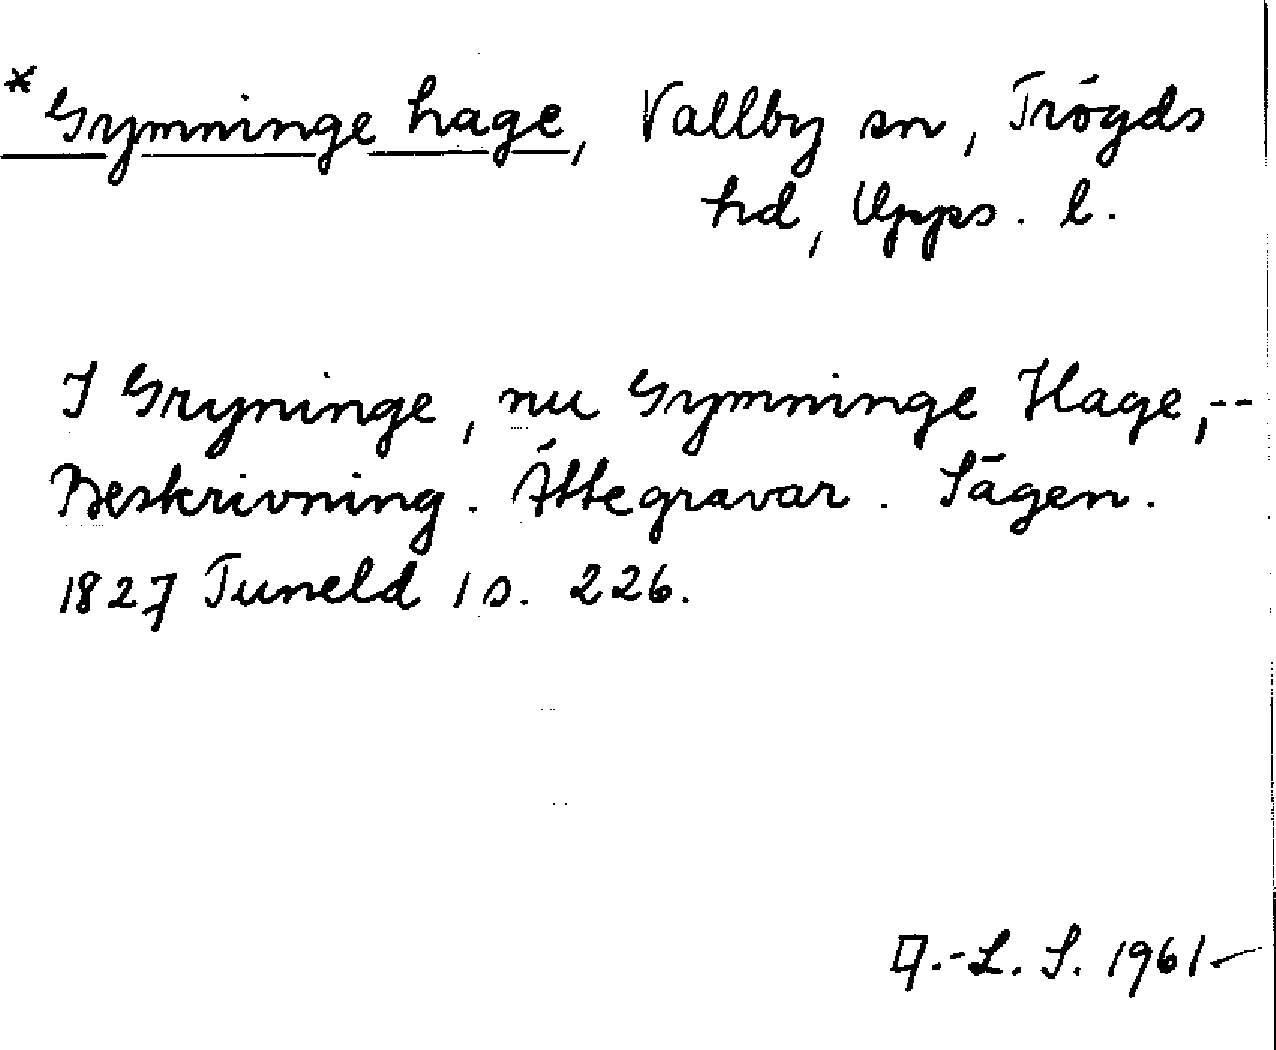 * Grymninge hage, Vallby sn, Trögds
hd, Upps. l.
I Gryninge, nu Grymninge Hage, --
Beskrivning. Ättegravar. Sägen.
1827 Tuneld 1 s. 226.
A.-L. S. 1961